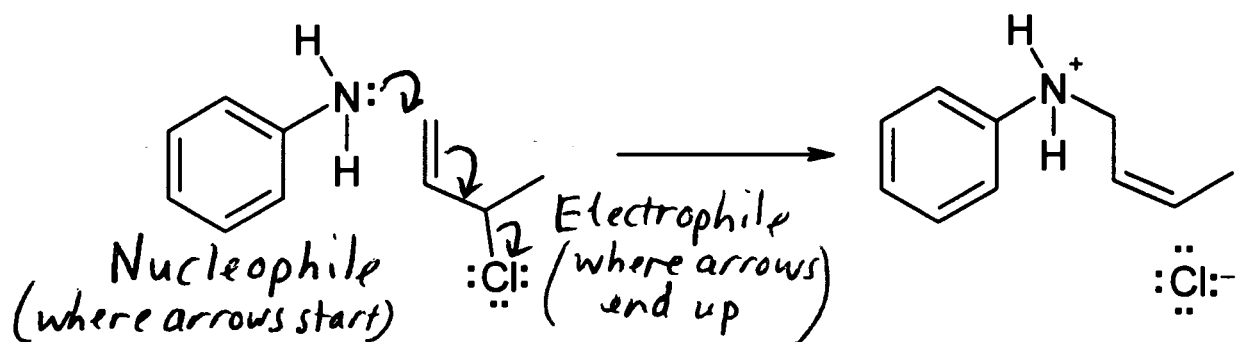 H
N:
H
:Cl:
Nucleophile
(where arrows start)
Electrophile
(where arrows
end up)
H
N+
H
:Cl:−